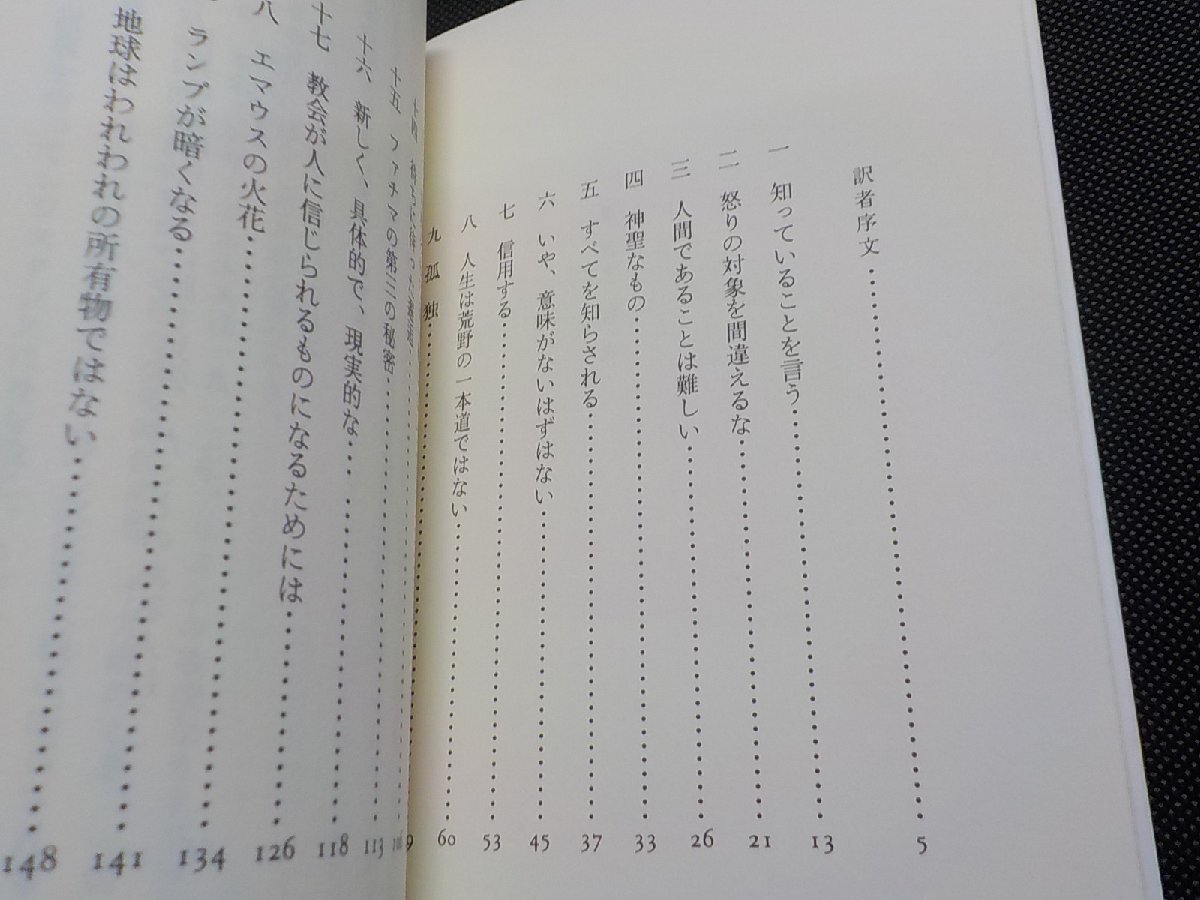 訳者序文 5
一 知っていることを言う 13
二 怒りの対象を間違えるな 21
三 人間であることは難しい 26
四 神聖なもの 33
五 すべてを知らされる 37
六 いや、意味がないはずはない 45
七 信用する 53
八 人生は荒野の一本道ではない 60
九 孤独
十五 ファチマの第三の秘密 113
十六 新しく、具体的で、現実的な 118
十七 教会が人に信じられるものになるためには 126
八 エマウスの火花 134
ランプが暗くなる 141
地球はわれわれの所有物ではない 148